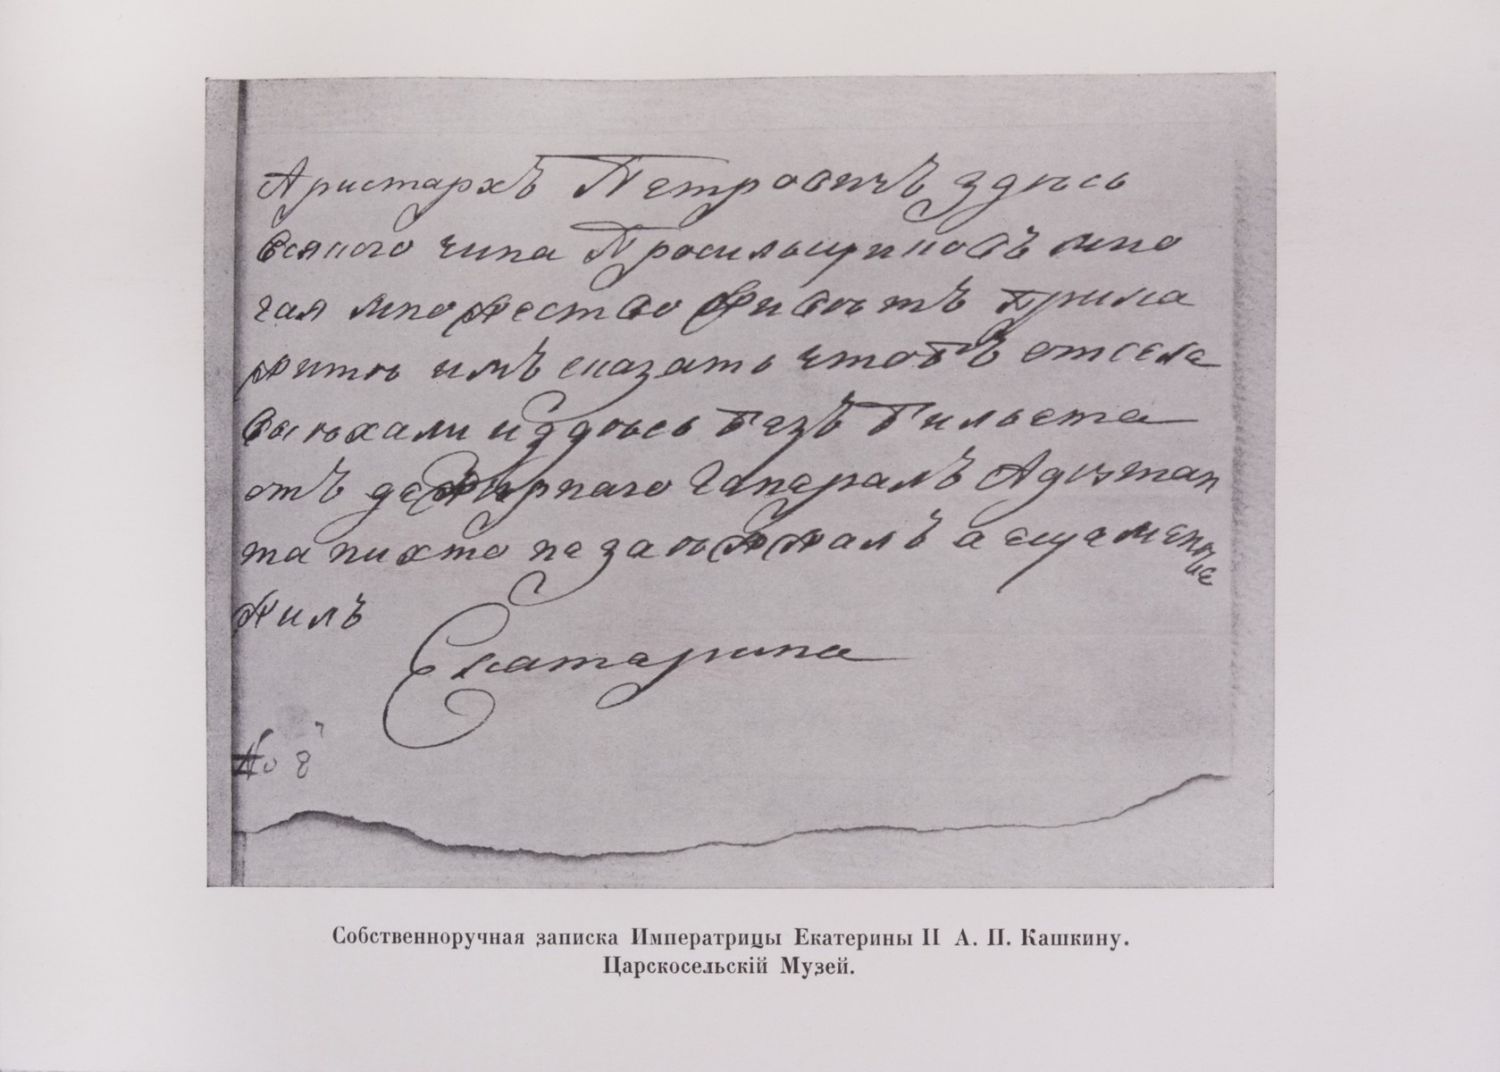 Аристархъ Петровичъ здѣсь
всякого чина просильщиковъ мно
гая множество живѣтъ прика
жите имъ сказать чтобъ отселе
выѣхали и здѣсь безъ бильета
отъ дежурнаго генералъ Адъютан
та никто не заѣжжалъ а еще менѣе
жилъ
Екатерина
No 8
Собственноручная записка Императрицы Екатерины II А. П. Кашкину.
Царскосельскій Музей.